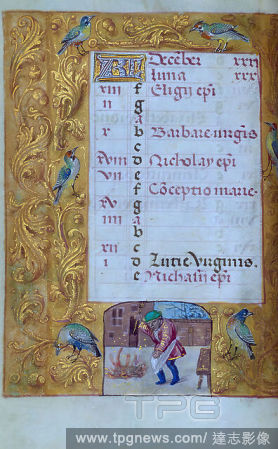 KL December xxxi
luna xxx
xiii f Eligii epi
ii g
A
x b Barbare virginis
c
xviii d Nicholay epi
vii e
f Conceptio marie
xv g
iiii A
b
xii c
i d Lucie Virginis
e Nichasii epi
TPG
www.tpgnews.com/ 達志影像